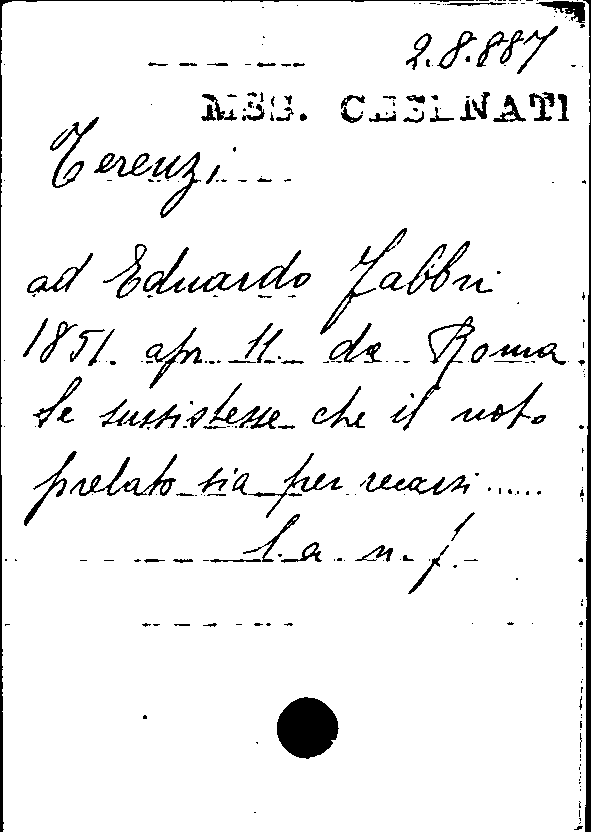 2.8.887
MSS. CESENATI
Terenzi
ad Eduardo Fabbri
1851. apr. 11. da Roma.
Se sussistesse che il noto
prelato sia per recarsi......
l. a. n. f.